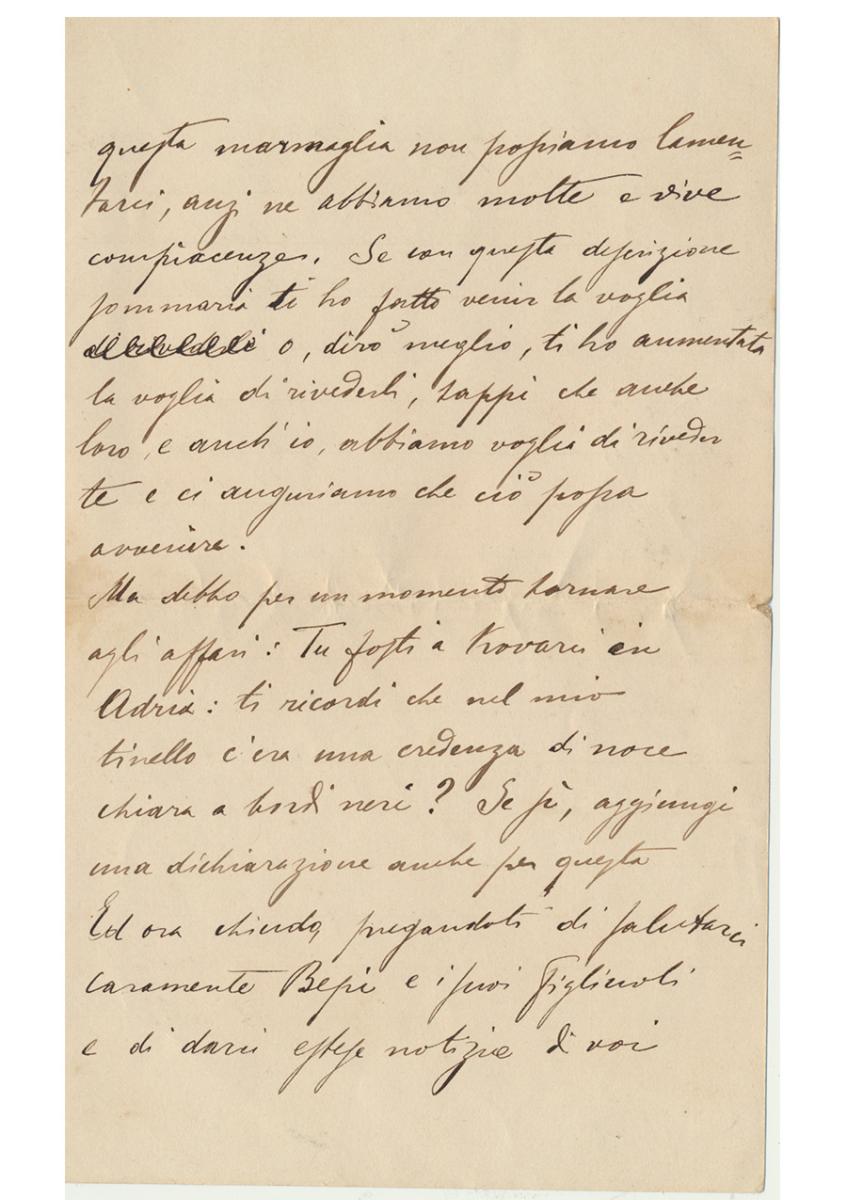 questa marmaglia non possiamo lamen=
tarci, anzi ne abbiamo molte e vive
compiacenze. Se con questa descrizione
sommaria ti ho fatto venir la voglia
o, dirò meglio, ti ho aumentata
la voglia di rivederli, sappi che anche
loro, e anch'io, abbiamo voglia di riveder
te e ci auguriamo che ciò possa
avvenire.
Ma debbo per un momento tornare
agli affari: Tu fosti a trovarci in
Adria: ti ricordi che nel mio
tinello c'era una credenza di noce
chiara a bordi neri? Se sì, aggiungi
una dichiarazione anche per questa
Ed ora chiudo, pregandoti di salutarci
caramente Bepi e i suoi figliuoli
e di darci estese notizie di voi